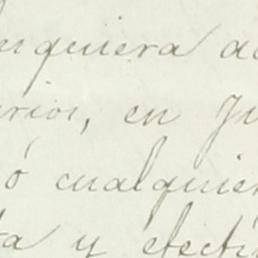 nquiera a
rios, en Ju
ó cualquier
ta y efecti